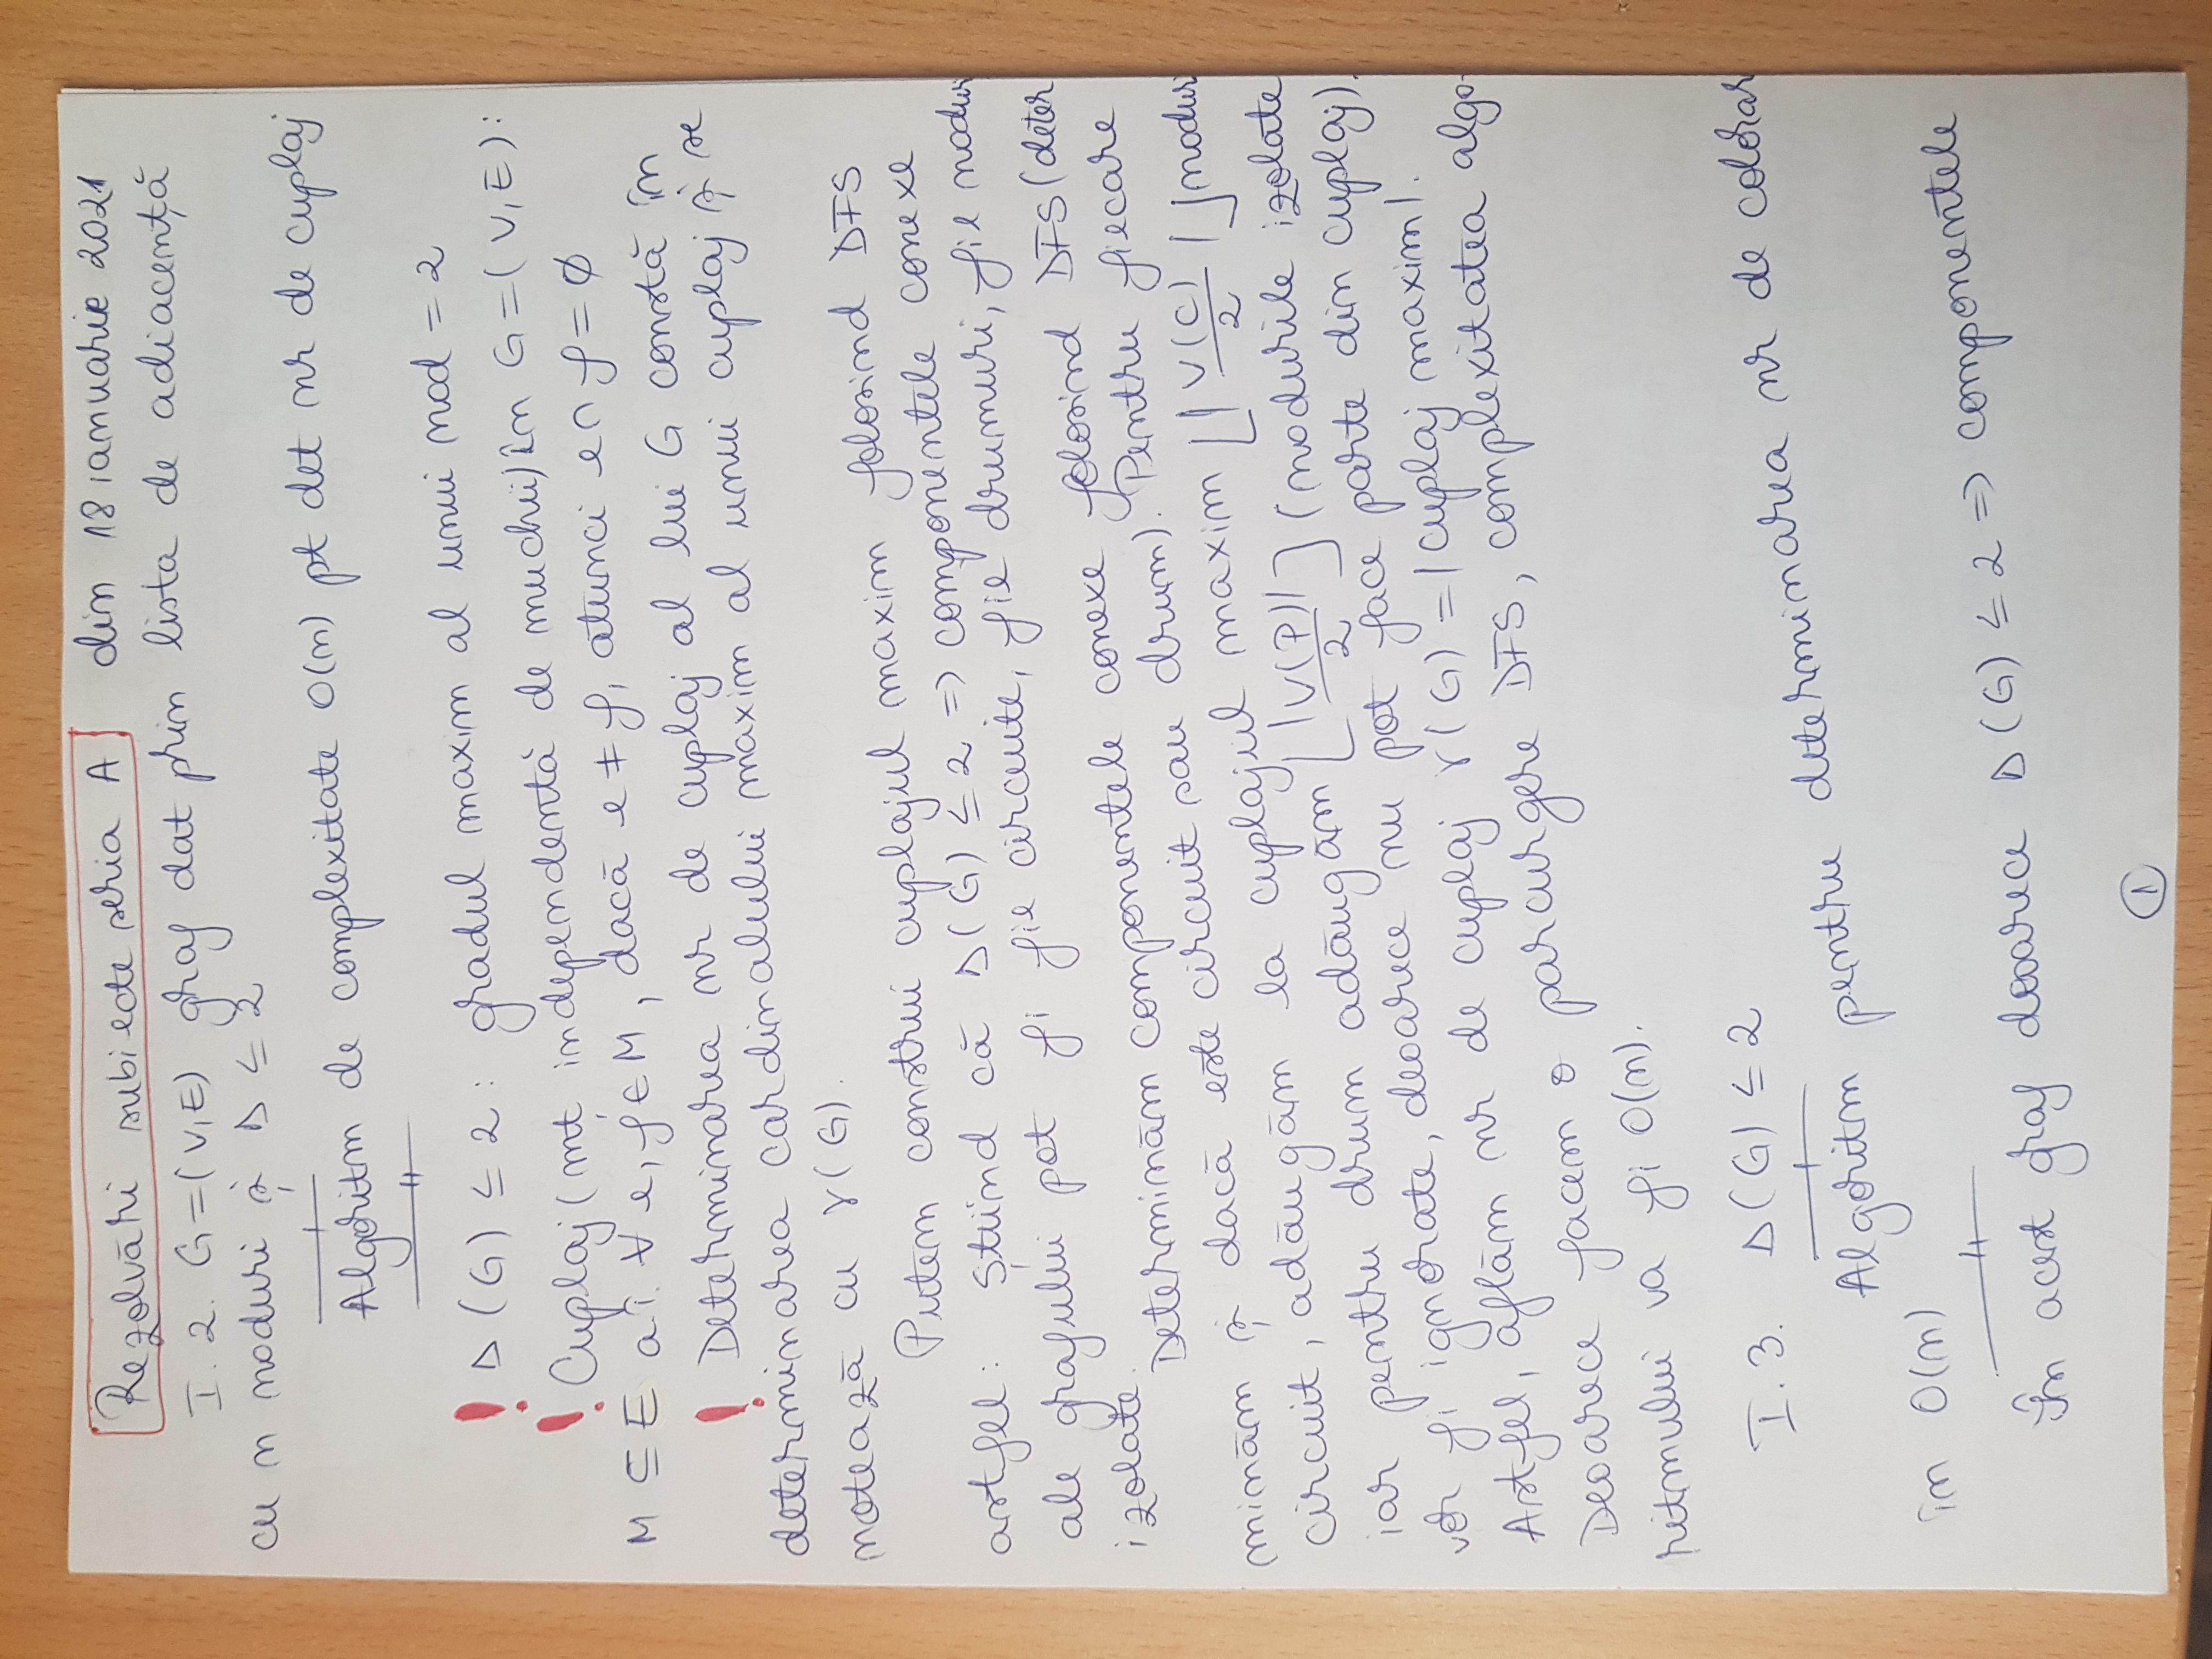 Rezolvări subiecte seria A din 18 ianuarie 2021
I. 2. G=(V,E) graf dat prin lista de adiacență
cu n noduri și Δ ≤ 2
Algoritm de complexitate O(n) pt det nr de cuplaj
! Δ(G) ≤ 2 : gradul maxim al unui nod = 2
! Cuplaj (mț independentă de muchii) în G=(V,E):
M ⊆ E a.î. ∀ e, f ∈ M, dacă e ≠ f, atunci e ∩ f = ∅
! Determinarea nr de cuplaj al lui G constă în
determinarea cardinalului maxim al unui cuplaj și se
notează cu γ(G).
Putem construi cuplajul maxim folosind DFS
astfel: Știind că Δ(G) ≤ 2 => componentele conexe
ale grafului pot fi fie circuite, fie drumuri, fie noduri
izolate.
Determinăm componentele conexe folosind DFS (deter
minăm și dacă este circuit sau drum). Pentru fiecare
circuit, adăugăm la cuplajul maxim ⌊|V(C)/2|⌋ noduri
iar pentru drum adăugăm ⌊|V(P)|/2⌋ (nodurile izolate
vor fi ignorate, deoarece nu pot face parte din cuplaj).
Astfel, aflăm nr de cuplaj γ(G) = |cuplaj maxim|.
Deoarece facem o parcurgere DFS, complexitatea algo-
ritmului va fi O(n).
I. 3. Δ(G) ≤ 2
Algoritm pentru determinarea nr de colorar
în O(n)
În acest graf deoarece Δ(G) ≤ 2 => componentele
1